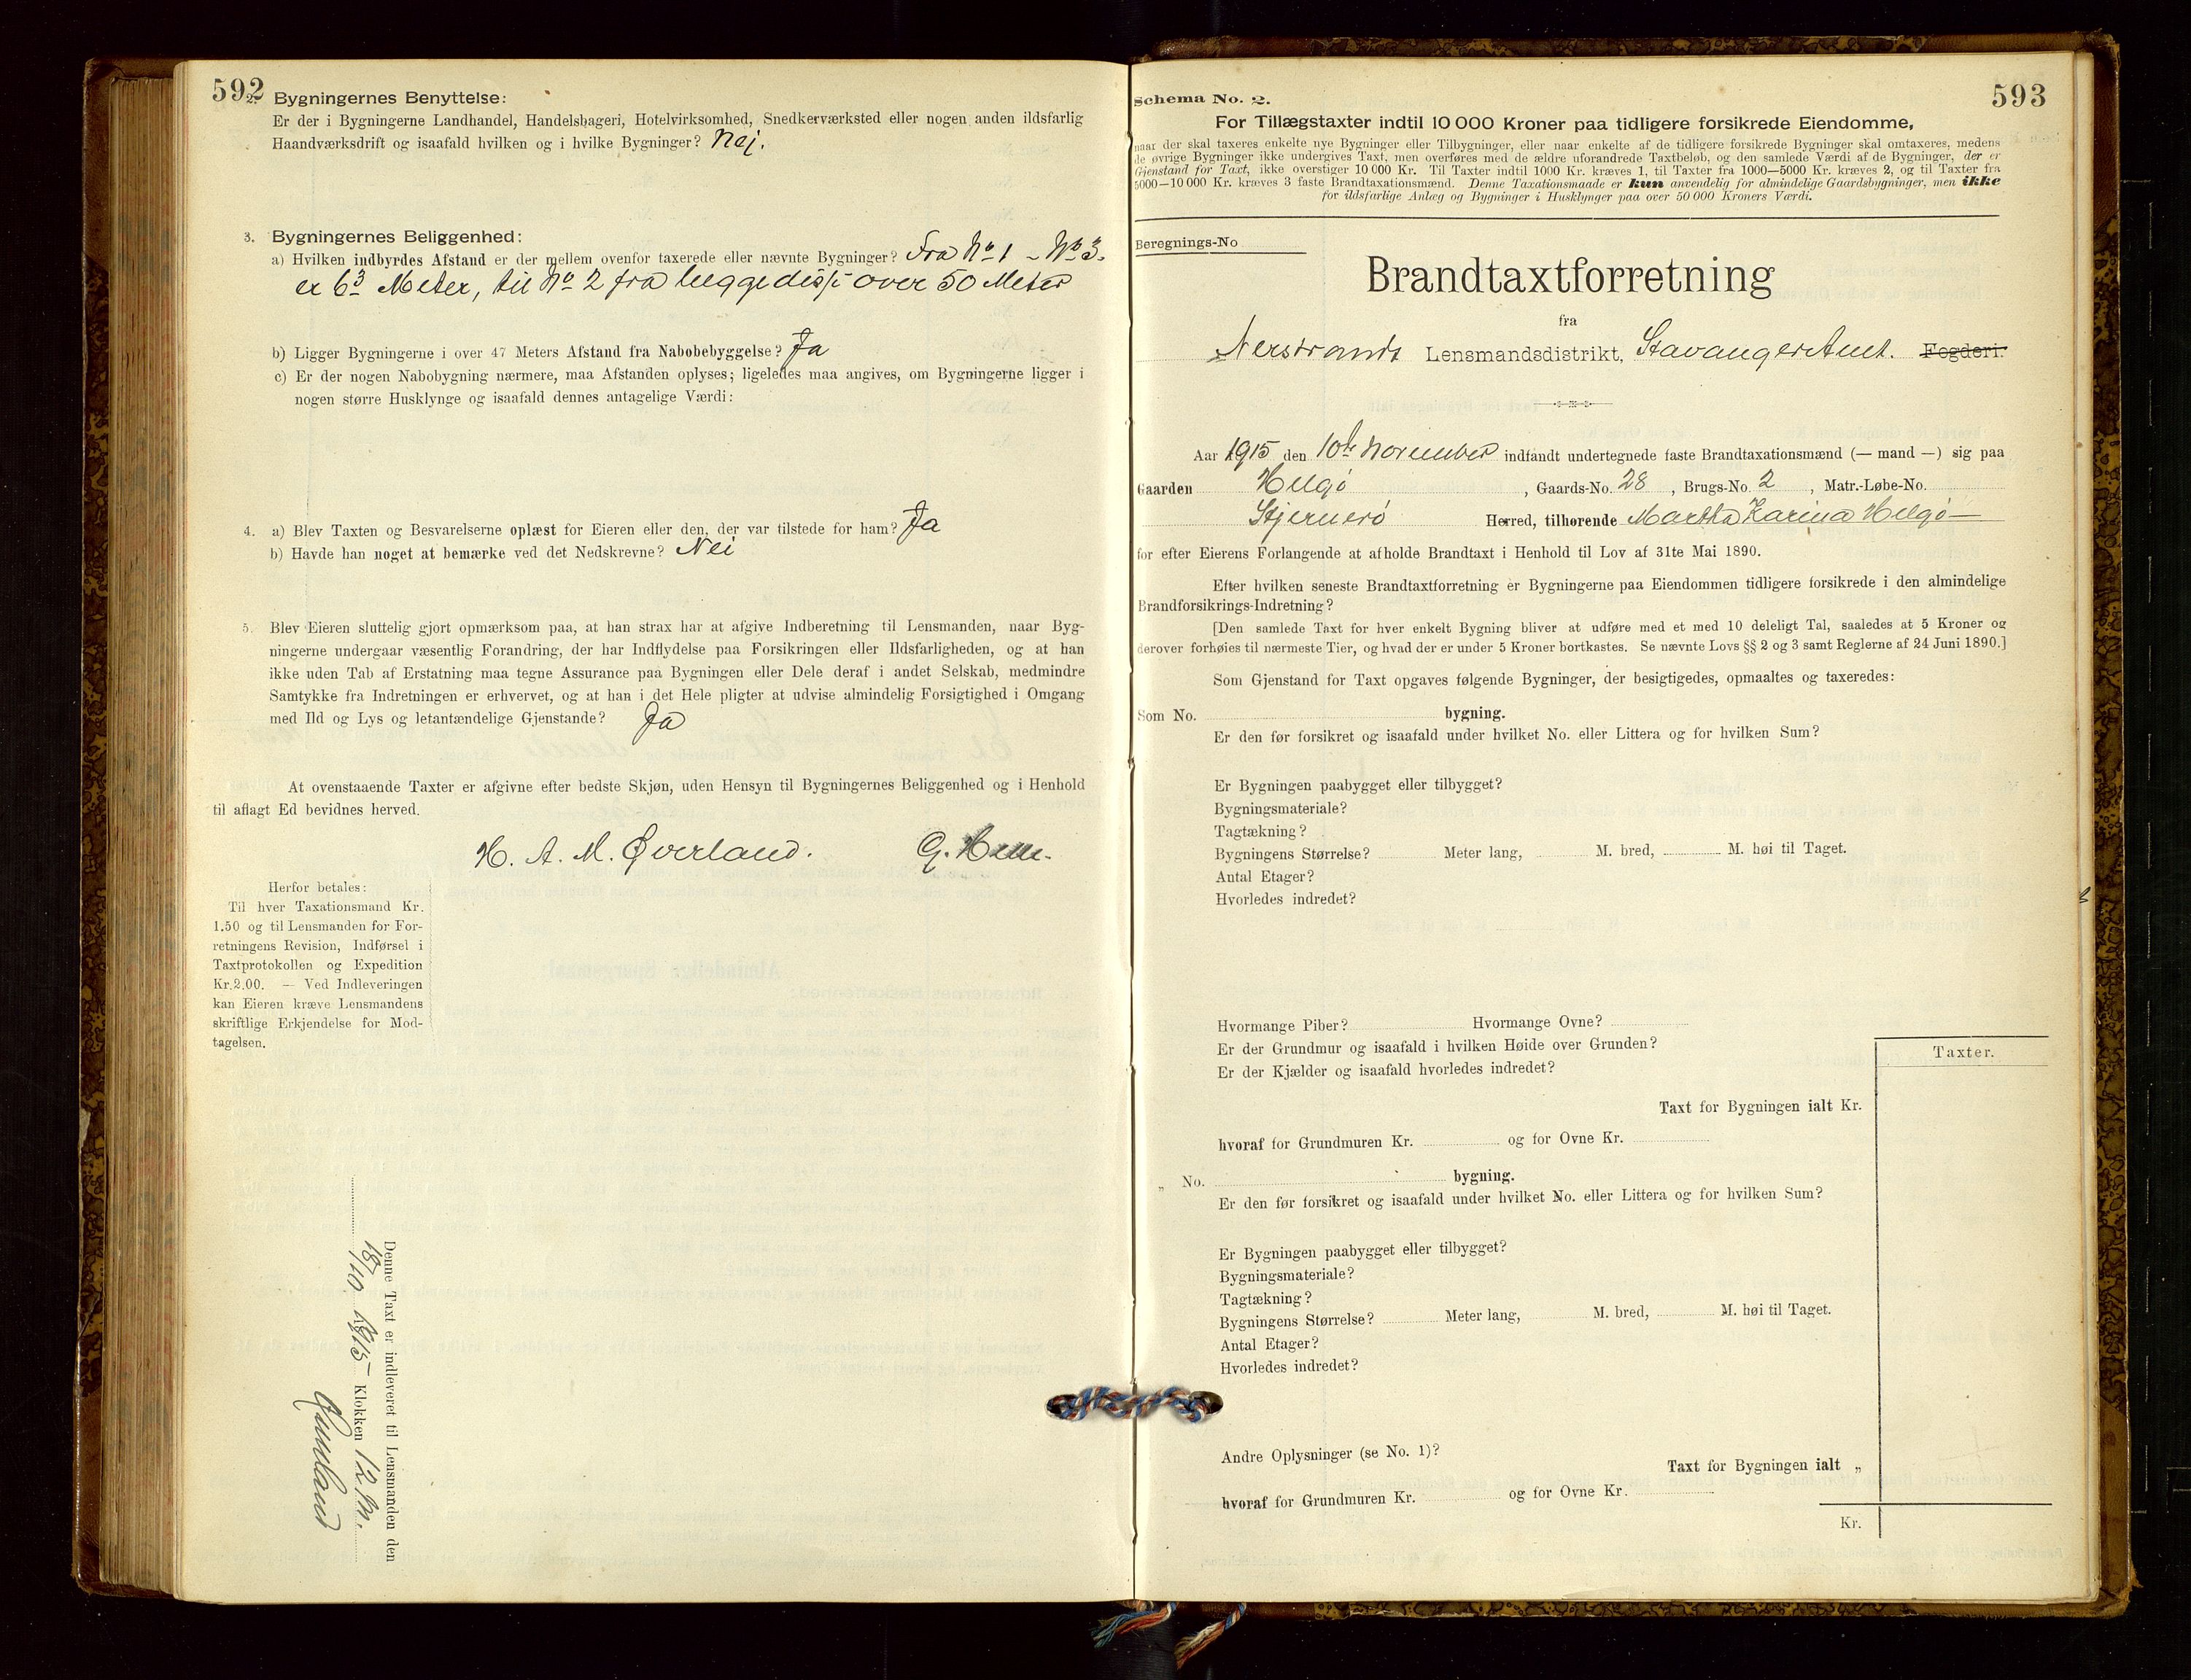 592
2. Bygningernes Benyttelse:
Er der i Bygningerne Landhandel, Handelsbageri, Hotelvirksomhed, Snedkerværksted eller nogen anden ildsfarlig
Haandværksdrift og isaafald hvilken og i hvilke Bygninger? Nej.
3. Bygningernes Beliggenhed:
a) Hvilken indbyrdes Afstand er der mellem ovenfor taxerede eller nævnte Bygninger? Fra No 1 – No 3.
er 63 Meter, til No 2 fra begge disse over 50 Meter
b) Ligger Bygningerne i over 47 Meters Afstand fra Nabobebyggelse? Ja
c) Er der nogen Nabobygning nærmere, maa Afstanden oplyses; ligeledes maa angives, om Bygningerne ligger i
nogen større Husklynge og isaafald dennes antagelige Værdi:
4. a) Blev Taxten og Besvarelserne oplæst for Eieren eller den, der var tilstede for ham? Ja
b) Havde han noget at bemærke ved det Nedskrevne? Nei
5. Blev Eieren sluttelig gjort opmærksom paa, at han strax har at afgive Indberetning til Lensmanden, naar Byg-
ningerne undergaar væsentlig Forandring, der har Indflydelse paa Forsikringen eller Ildsfarligheden, og at han
ikke uden Tab af Erstatning maa tegne Assurance paa Bygningen eller Dele deraf i andet Selskab, medmindre
Samtykke fra Indretningen er erhvervet, og at han i det Hele pligter at udvise almindelig Forsigtighed i Omgang
med Ild og Lys og letantændelige Gjenstande? Ja
At ovenstaaende Taxter er afgivne efter bedste Skjøn, uden Hensyn til Bygningernes Beliggenhed og i Henhold
til aflagt Ed bevidnes herved.
H. A. M. Øverland. G. Helle.
Herfor betales:
Til hver Taxationsmand Kr.
1.50 og til Lensmanden for For-
retningens Revision, Indførsel i
Taxtprotokollen og Expedition
Kr. 2.00. — Ved Indleveringen
kan Eieren kræve Lensmandens
skriftlige Erkjendelse for Mod-
tagelsen.
Denne Taxt er indleveret til Lensmanden den
18/10 1915 Klokken 12 M.
593
Schema No. 2.
For Tillægstaxter indtil 10 000 Kroner paa tidligere forsikrede Eiendomme,
naar der skal taxeres enkelte nye Bygninger eller Tilbygninger, eller naar enkelte af de tidligere forsikrede Bygninger skal omtaxeres, medens
de øvrige Bygninger ikke undergives Taxt, men overføres med de ældre uforandrede Taxtbeløb, og den samlede Værdi af de Bygninger, der er
Gjenstand for Taxt, ikke overstiger 10 000 Kr. Til Taxter indtil 1000 Kr. kræves 1, til Taxter fra 1000—5000 Kr. kræves 2, og til Taxter fra
5000—10 000 Kr. kræves 3 faste Brandtaxationsmænd. Denne Taxationsmaade er kun anvendelig for almindelige Gaardsbygninger, men ikke
for ildsfarlige Anlæg og Bygninger i Husklynger paa over 50 000 Kroners Værdi.
Beregnings-No
Brandtaxtforretning
fra
Nerstrands Lensmandsdistrikt, Stavanger Amt. Fogderi.
Aar 1915 den 10de November indfandt undertegnede faste Brandtaxationsmænd (— mand —) sig paa
Gaarden Helgø, Gaards-No. 28, Brugs-No. 2, Matr.-Løbe-No.
Stjernerø Herred, tilhørende Martha Karina Helgø —
for efter Eierens Forlangende at afholde Brandtaxt i Henhold til Lov af 31te Mai 1890.
Efter hvilken seneste Brandtaxtforretning er Bygningerne paa Eiendommen tidligere forsikrede i den almindelige
Brandforsikrings-Indretning?
[Den samlede Taxt for hver enkelt Bygning bliver at udføre med et med 10 deleligt Tal, saaledes at 5 Kroner og
derover forhøies til nærmeste Tier, og hvad der er under 5 Kroner bortkastes. Se nævnte Lovs §§ 2 og 3 samt Reglerne af 24 Juni 1890.]
Som Gjenstand for Taxt opgaves følgende Bygninger, der besigtigedes, opmaaltes og taxeredes:
Som No. bygning.
Er den før forsikret og isaafald under hvilket No. eller Littera og for hvilken Sum?
Er Bygningen paabygget eller tilbygget?
Bygningsmateriale?
Tagtækning?
Bygningens Størrelse? Meter lang, M. bred, M. høi til Taget.
Antal Etager?
Hvorledes indredet?
Hvormange Piber? Hvormange Ovne?
Er der Grundmur og isaafald i hvilken Høide over Grunden?
Er der Kjælder og isaafald hvorledes indredet?
Taxter.
Taxt for Bygningen ialt Kr.
hvoraf for Grundmuren Kr. og for Ovne Kr.
„ No. bygning.
Er den før forsikret og isaafald under hvilket No. eller Littera og for hvilken Sum?
Er Bygningen paabygget eller tilbygget?
Bygningsmateriale?
Tagtækning?
Bygningens Størrelse? Meter lang, M. bred, M. høi til Taget.
Antal Etager?
Hvorledes indredet?
Andre Oplysninger (se No. 1)?
Taxt for Bygningen ialt „
hvoraf for Grundmuren Kr. og for Ovne Kr.
Kr.